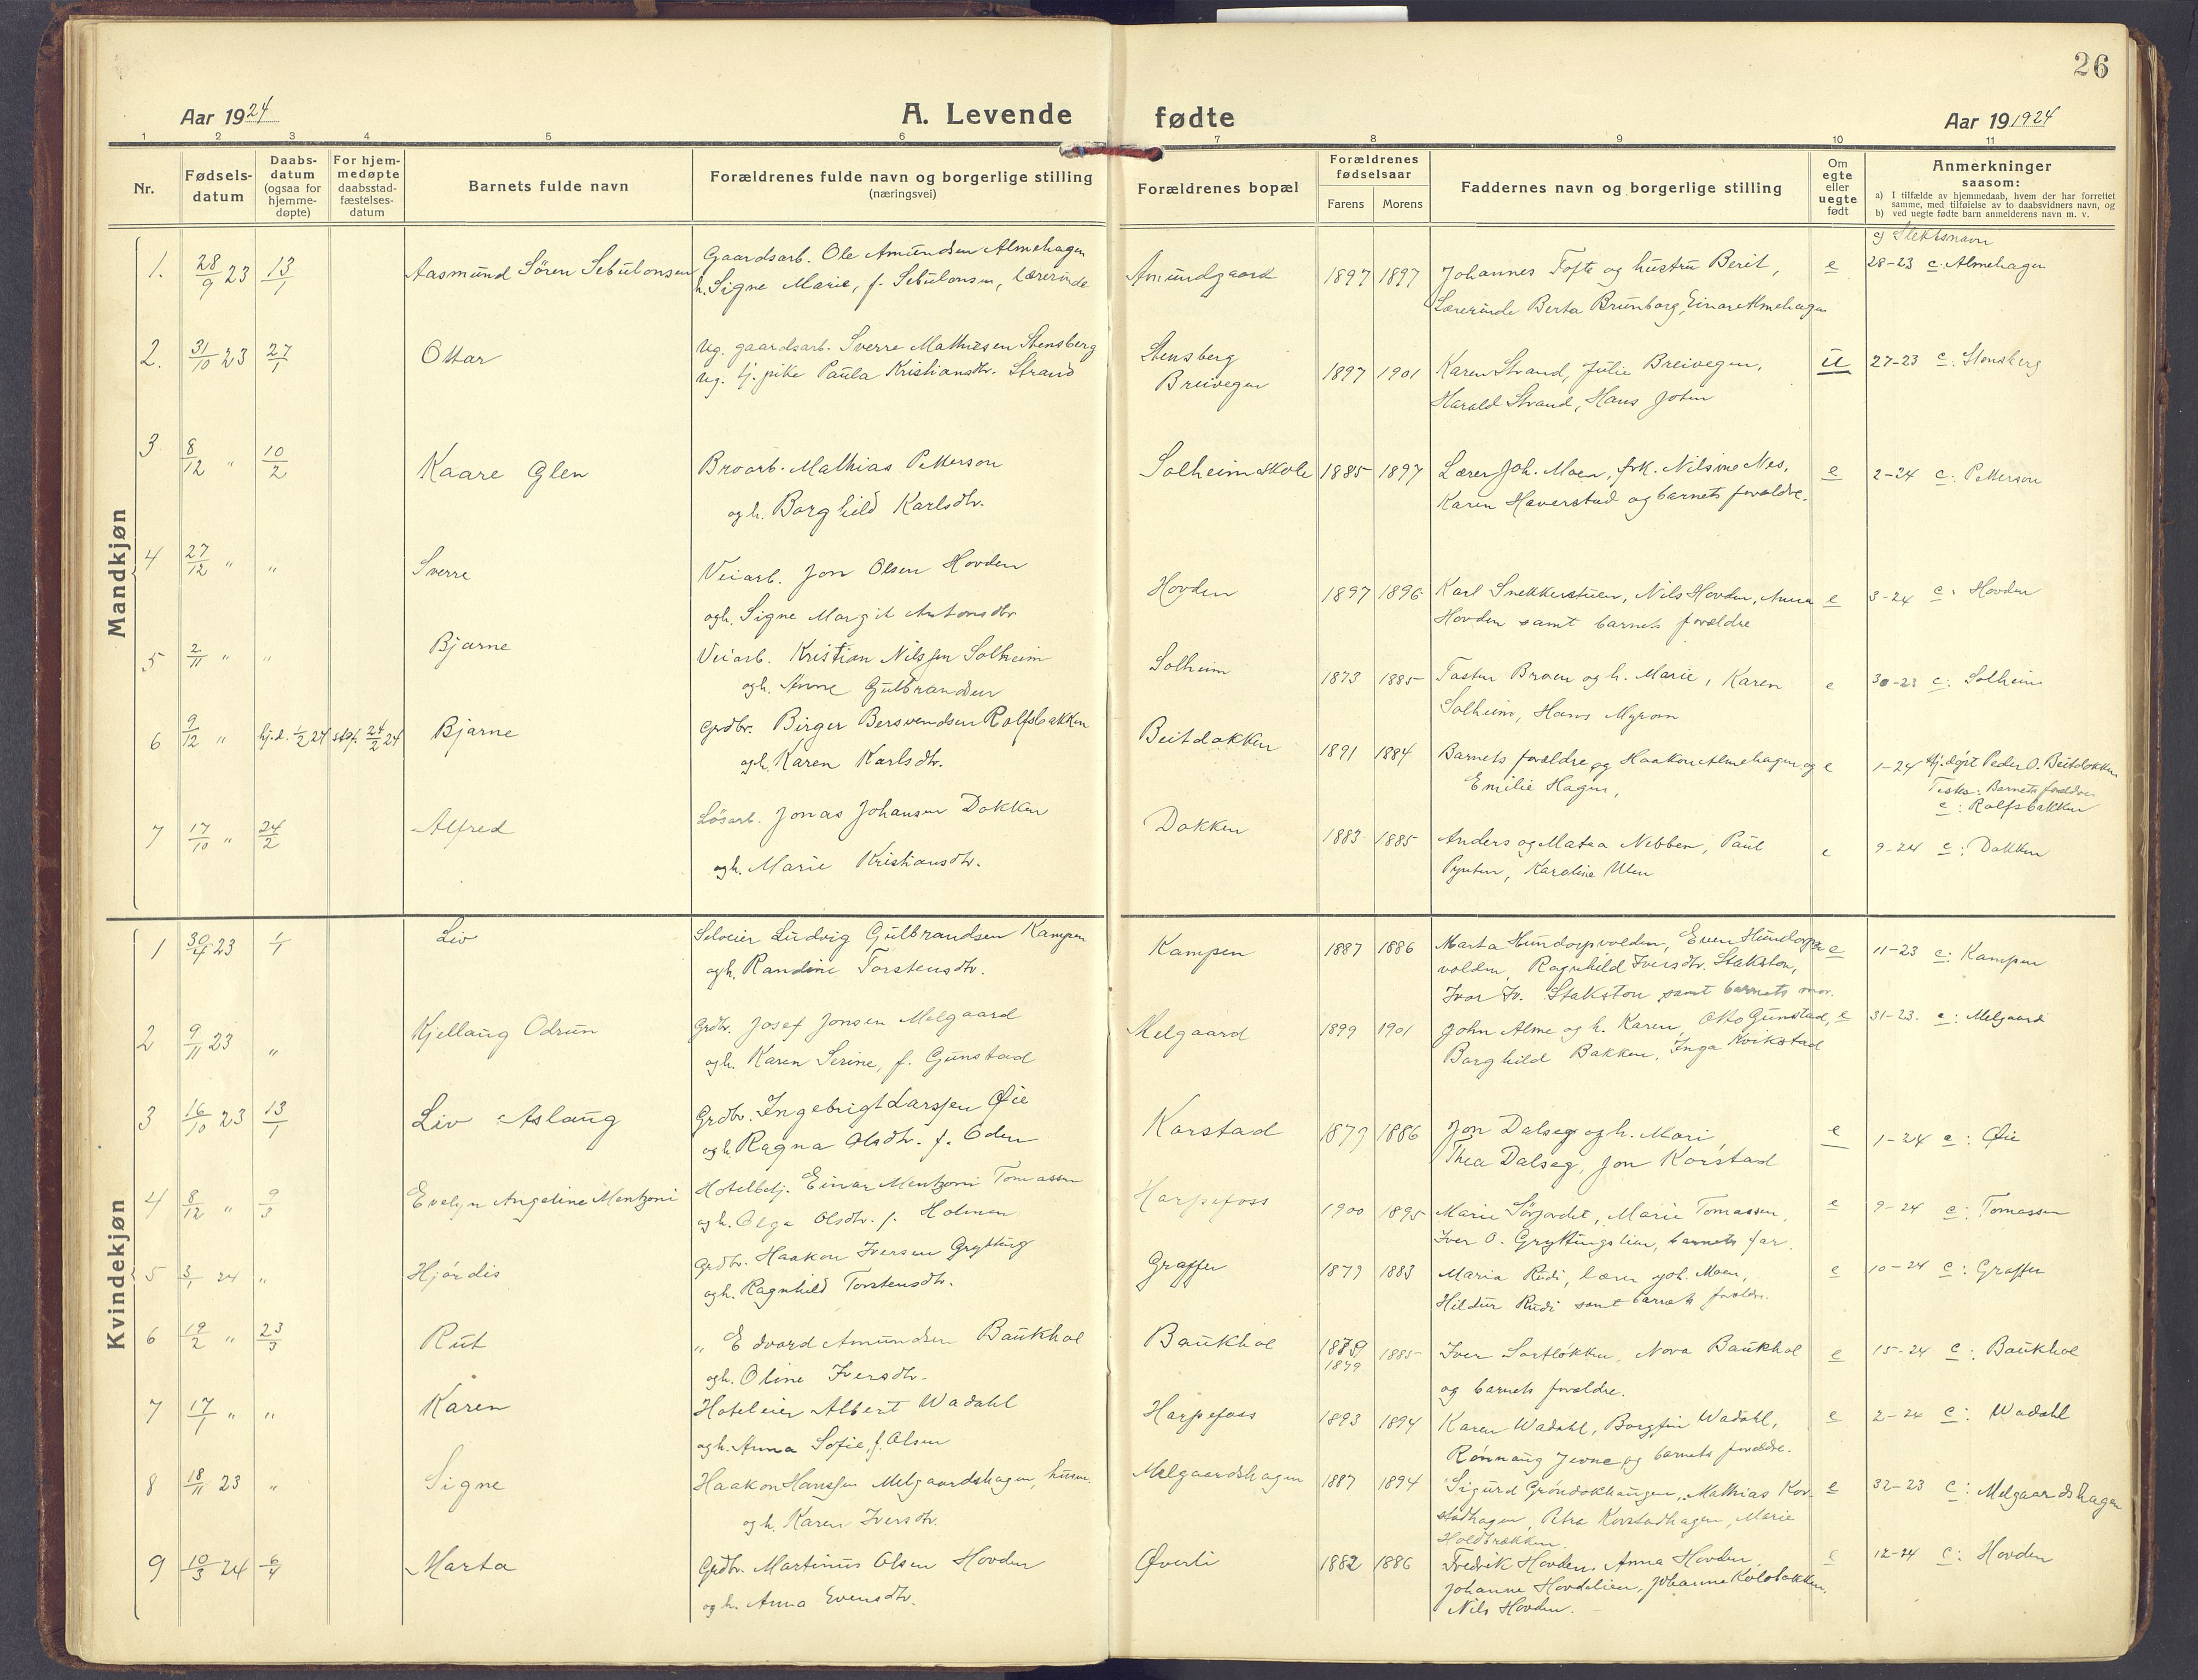 26
Aar 1924
A. Levende fødte
Aar 19 1924
1 2 3 4 5 6 7 8 9 10 11
Nr.
Fødsels-
datum
Daabs-
datum
(ogsaa for
hjemme-
døpte)
For hjem-
medøpte
daabsstad-
fæstelses-
datum
Barnets fulde navn
Forældrenes fulde navn og borgerlige stilling
(næringsvei)
Forældrenes bopæl
Forældrenes
fødselsaar
Farens Morens
Faddernes navn og borgerlige stilling
Om
egte
eller
uegte
født
Anmerkninger
saasom:
a) I tilfælde av hjemmedaab, hvem der har forrettet
samme, med tilføielse av to daabsvidners navn, og
b) ved uegte fødte barn anmelderens navn m. v.
c) Slektsnavn
Mandkjøn
1. 28/9 23 13/1 Aasmund Søren Sebulonsen Gaardsarb. Ole Amundsen Almehagen Amundgaard 1897 1897 Johannes Tofte og hustru Berit, e 28-23 c. Almehagen
h. Signe Marie, f. Sebulonsen, lærerinde Lærerinde Berta Brunborg, Einar Almehagen
2. 31/10 23 27/1 Ottar Ug. gaardsarb. Sverre Mathiesen Stensberg Stensberg 1897 1901 Karen Strand, Julie Breivegen, u 27-23 c: Stensberg
Ug. tj. pike Paula Kristiansdtr. Strand Breivegen Harald Strand, Hans
3 8/12 " 10/2 Kaare Glen Broarb. Mathias Petterson Solheim skole 1885 1897 Lærer Joh. Moen, frk. Nilsine Nes, e 2-24 c: Petterson
og h. Borghild Karlsdtr. Karen Haverstad og barnets forældre.
4 27/12 " " Sverre Veiarb. Jon Olsen Hovden Hovden 1897 1896 Karl Snekkerstuen, Nils Hovden, Anna e 3-24 c: Hovden
og h. Signe Margit Antonsdtr Hovden samt barnets forældre
5 2/11 " " Bjarne Veiarb. Kristian Nilssen Solheim Solheim 1873 1885 Tosten Broen og h. Marie, Karen e 30-23 c: Solheim
og h. Anne Gulbrandsen Solheim, Hans Myrom
6 9/12 " hj.d. 1/2 24 stf. 24/2 24 Bjarne Grdbr. Birger Bersvendsen Rolfsbakken Beitdokken 1891 1884 Barnets forældre og Haakon Almehagen og e 1-24 Hj. døpt Peder O. Beitdokken
og h. Karen Karlsdtr. Emilie Hagen, Testes: Barnets forældre
c: Rolfsbakken
7 17/10 " 24/2 Alfred Løsarb. Jonas Johansen Dokken Dokken 1883 1885 Anders og Matea Nebben, Paul e 9-24 c: Dokken
og h. Marie Kristiansdtr. Pynten, Karoline Ulen
Kvindekjøn
1 23 1/1 Liv Selveier Ludvig Gulbrandsen Kampen Kampen 1887 1886 Marta Hundorpvolden, Even Hundorp- e 11-23 c: Kampen
og h. Randine Torstensdtr. volden, Ragnhild Iversdtr. Stakston,
Ivar Iv. Stakston samt barnets mor.
2 9/11 23 " Kjellaug Odrun Grdbr. Josef Jonsen Melgaard Melgaard 1899 1901 John Alme og h. Karen, Otto Gunstad, e 31-23. c: Melgaard
og h. Karen Serine, f. Gunstad Borghild Bakken, Inga Kvikstad
3 16/10 23 13/1 Liv Aslaug Grdbr. Ingebrigt Larssen Øie Korstad 1879 1886 Jon Dalseg og h. Mari, e 1-24 c: Øie
og h. Ragna Olsdtr. f. Oden Thea Dalseg, Jon Korstad
4 8/12 " 9/3 Evelyn Angeline Mentzoni Hotelbetj. Einar Mentzoni Tomassen Harpefoss 1900 1895 Marie Sørjordet, Marie Tomassen, e 9-24 c: Tomassen
og h. Olga Olsdtr. f. Holmen Iver O. Gryttingslien, barnets far.
5 3/1 24 " Hjørdis Grdbr. Haakon Iversen Grytting Graffer 1879 1883 Maria Rudi, lærer Joh. Moen, e 10-24 c: Graffer
og h. Ragnhild Torstensdtr. Hildur Rudi samt barnets forældre.
6 19/2 " 23/3 Rut " Edvard Amundsen Baukhol Baukhol 1879 1885 Iver Sortløkken, Nora Baukhol e 15-24 c: Baukhol
1879
og h. Oline Iversdtr. og barnets forældre.
7 17/1 " " Karen Hoteleier Albert Wadahl Harpefoss 1893 1894 Karen Wadahl, Borgfin Wadahl, e 2-24 c: Wadahl
og h. Anna Sofie, f. Olsen Rønnaug Jevne og barnets forældre.
8 18/11 23 " Signe Haakon Hanssen Melgaardshagen, husm. Melgaardshagen 1887 1894 Sigurd Grøndokhaugen, Mathias Kor- e 32-23 c: Melgaardshagen
og h. Karen Iversdtr. stadhagen, Petra Korstadhagen, Marie
Holdbrækken.
9 10/3 24 6/4 Marta Grdbr. Martinus Olsen Hovden Øverli 1882 1886 Fredrik Hovden, Anna Hovden, e 12-24 c: Hovden
og h. Anna Evensdtr. Johanne Hovdelien, Johanne Kolobakken,
Nils Hovden.